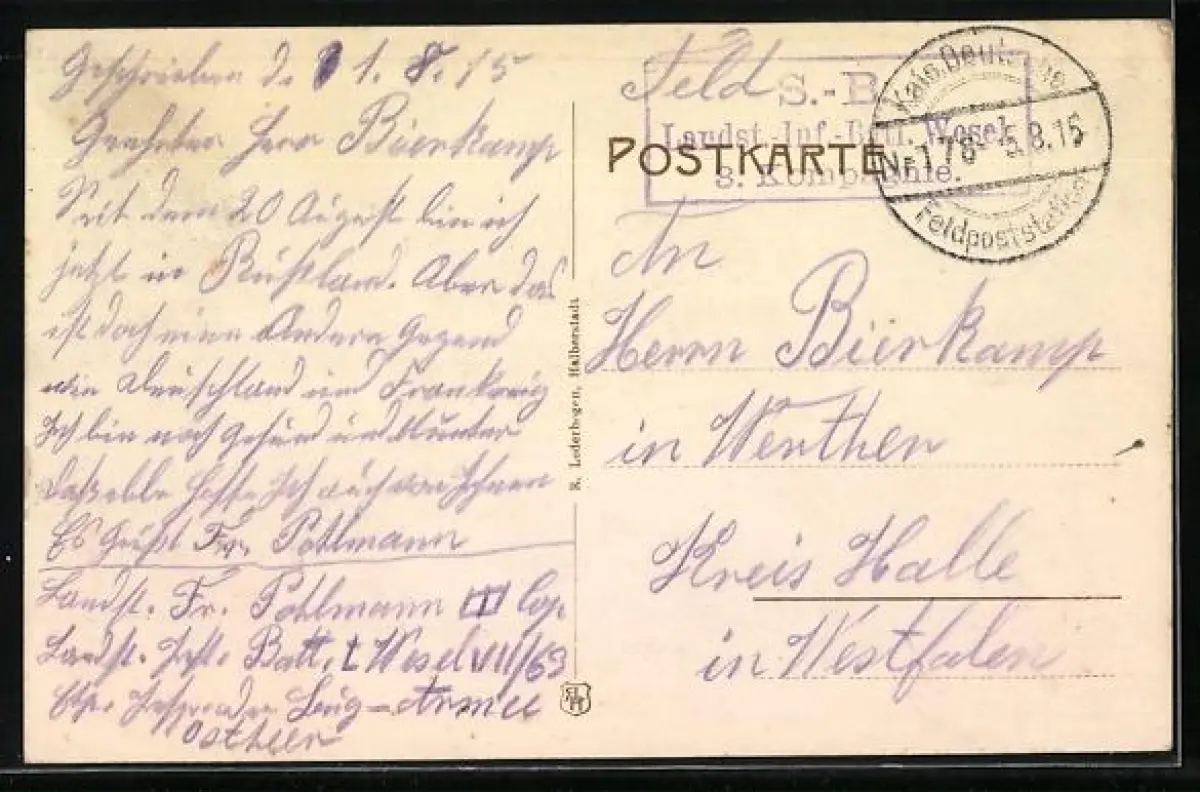 Geschrieben d. 1. 8. 15
Geehrter Herr Bierkamp
Seit dem 20 August bin ich
jetzt in Rußland. Aber das
ist doch eine Andere Gegend
wie Deuschland und Frankreig
Ich bin noch Gesund und Munter
Daßelbe hoffe Ich auch von Ihnen
Es Grüßt Fr. Pohlmann
Landst. Fr. Pohlmann III Cop.
Landst. Inft. Batt. I Wesel VII/63
Armee
Ostheer
Feld
S.-B.
Landst.-Inf.-Batl. Wesel
3. Kompagnie.
POSTKARTE
Kais. Deutsche
Nr. 178 5.8.15
Feldpoststation
An
Herrn Bierkamp
in Werther
Kreis Halle
in Westfalen
R. Lederbogen, Halberstadt